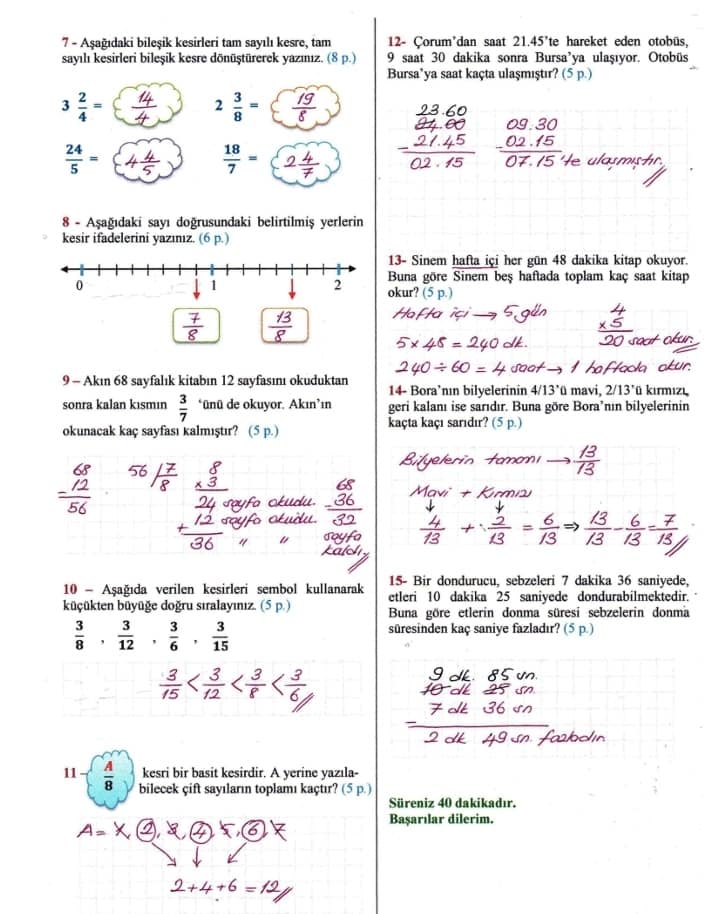 7 - Aşağıdaki bileşik kesirleri tam sayılı kesre, tam
sayılı kesirleri bileşik kesre dönüştürerek yazınız. (8 p.)
3 2/4 = 14/4
2 3/8 = 19/8
24/5 = 4 4/5
18/7 = 2 4/7
8 - Aşağıdaki sayı doğrusundaki belirtilmiş yerlerin
kesir ifadelerini yazınız. (6 p.)
0 1 2
7/8 13/8
9 – Akın 68 sayfalık kitabın 12 sayfasını okuduktan
sonra kalan kısmın 3/7 ‘ünü de okuyor. Akın’ın
okunacak kaç sayfası kalmıştır? (5 p.)
68
12
-
56
56 / 7
8
8
x 3
24 sayfa okudu.
+ 12 sayfa okudu.
36 " "
68
- 36
32
sayfa
kaldı.
10 – Aşağıda verilen kesirleri sembol kullanarak
küçükten büyüğe doğru sıralayınız. (5 p.)
3/8 , 3/12 , 3/6 , 3/15
3/15 < 3/12 < 3/8 < 3/6
11 – A/8 kesri bir basit kesirdir. A yerine yazıla-
bilecek çift sayıların toplamı kaçtır? (5 p.)
A = 1, 2, 3, 4, 5, 6, 7
2+4+6 = 12
12- Çorum’dan saat 21.45’te hareket eden otobüs,
9 saat 30 dakika sonra Bursa’ya ulaşıyor. Otobüs
Bursa’ya saat kaçta ulaşmıştır? (5 p.)
23.60
24.00
- 21.45
02.15
09.30
- 02.15
07.15 'te ulaşmıştır.
13- Sinem hafta içi her gün 48 dakika kitap okuyor.
Buna göre Sinem beş haftada toplam kaç saat kitap
okur? (5 p.)
Hafta içi → 5 gün
5 x 48 = 240 dk.
240 ÷ 60 = 4 saat → 1 haftada okur.
4
x 5
20 saat okur.
14- Bora’nın bilyelerinin 4/13’ü mavi, 2/13’ü kırmızı,
geri kalanı ise sarıdır. Buna göre Bora’nın bilyelerinin
kaçta kaçı sarıdır? (5 p.)
Bilyelerin tamamı → 13/13
Mavi + Kırmızı
↓ ↓
4/13 + 2/13 = 6/13 ⇒ 13/13 - 6/13 = 7/13
15- Bir dondurucu, sebzeleri 7 dakika 36 saniyede,
etleri 10 dakika 25 saniyede dondurabilmektedir.
Buna göre etlerin donma süresi sebzelerin donma
süresinden kaç saniye fazladır? (5 p.)
9 dk. 85 sn.
10 dk 25 sn.
7 dk 36 sn
-
2 dk 49 sn. fazladır.
Süreniz 40 dakikadır.
Başarılar dilerim.